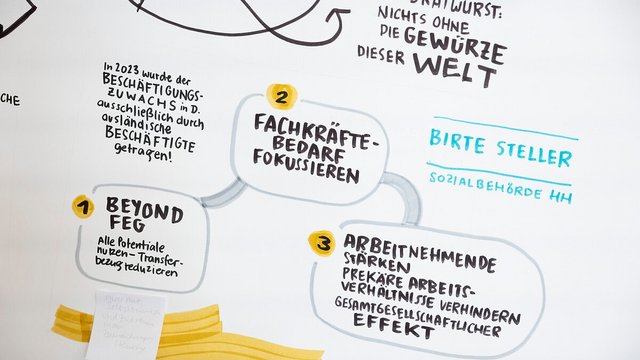 BRATWURST:
NICHTS OHNE
DIE GEWÜRZE
DIESER WELT
CHE
In 2023 wurde der
BESCHÄFTIGUNGS-
ZUWACHS in D.
ausschließlich durch
ausländische
BESCHÄFTIGTE
getragen!
2
FACHKRÄFTE-
BEDARF
FOKUSSIEREN
BIRTE STELLER
SOZIALBEHÖRDE HH
1
BEYOND
FEG
Alle Potentiale
nutzen – Transfer-
bezug reduzieren
3
ARBEITNEHMENDE
STÄRKEN
PREKÄRE ARBEITS-
VERHÄLTNISSE VERHINDERN
GESAMTGESELLSCHAFTLICHER
EFFEKT